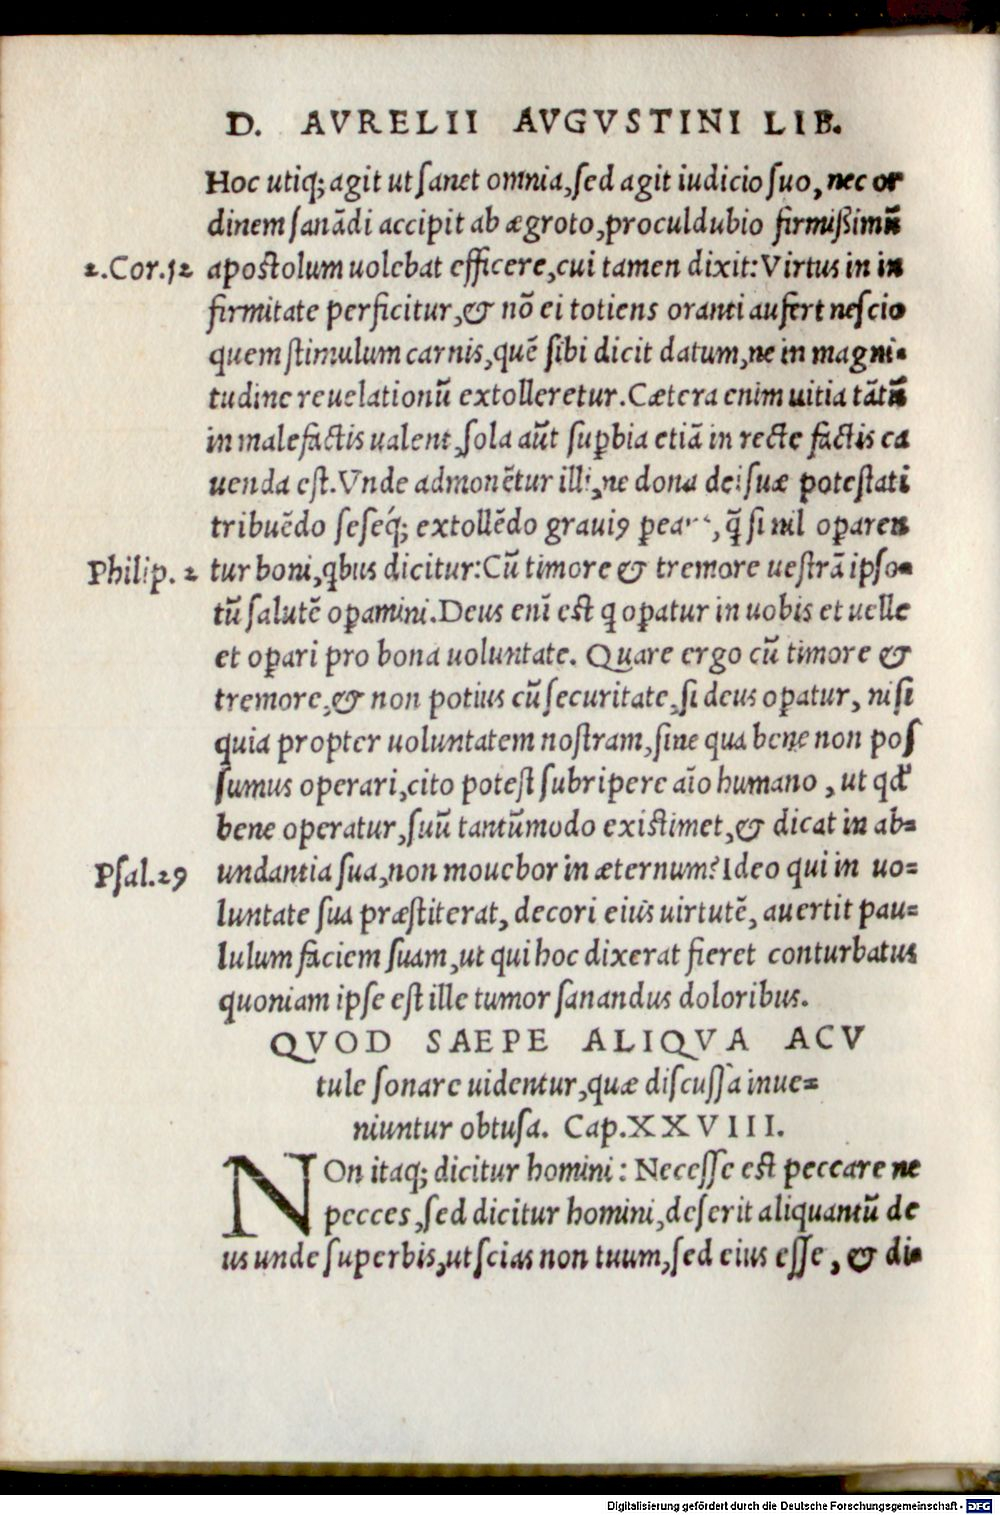 D. AVRELII AVGVSTINI LIB.
Hoc utiq; agit ut sanet omnia, sed agit iudicio suo, nec or
dinem sanādi accipit ab ægroto, proculdubio firmißimū
2.Cor.12 apostolum uolebat efficere, cui tamen dixit: Virtus in in
firmitate perficitur, & nō ei totiens oranti aufert nescio
quem stimulum carnis, quē sibi dicit datum, ne in magni-
tudine reuelationū extolleretur. Cætera enim uitia tātū
in malefactis ualent, sola aūt suꝑbia etiā in recte factis ca
uenda est. Vnde admonētur illi, ne dona dei suæ potestati
tribuēdo seseq́; extollēdo grauiꝰ , q̄ si nil oꝑaren
Philip. 2 tur boni, qbus dicitur: Cū timore & tremore uestrā ipso-
tū salutē oꝑamini. Deus enī est q oꝑatur in uobis et uelle
et oꝑari pro bona uoluntate. Quare ergo cū timore &
tremore, & non potius cū securitate, si deus oꝑatur, nisi
quia propter uoluntatem nostram, sine qua bene non pos
sumus operari, cito potest subripere aīo humano, ut qd'
bene operatur, suū tantūmodo existimet, & dicat in ab=
Psal.29 undantia sua, non mouebor in æternum? Ideo qui in uo=
luntate sua præstiterat, decori eius uirtutē, auertit pau=
lulum faciem suam, ut qui hoc dixerat fieret conturbatus
quoniam ipse est ille tumor sanandus doloribus.
QVOD SAEPE ALIQVA ACV
tule sonare uidentur, quæ discussa inue=
niuntur obtusa. Cap.XXVIII.
NOn itaq; dicitur homini: Necesse est peccare ne
pecces, sed dicitur homini, deserit aliquantū de
us unde superbis, ut scias non tuum, sed eius esse, & di-
Digitalisierung gefördert durch die Deutsche Forschungsgemeinschaft - DFG